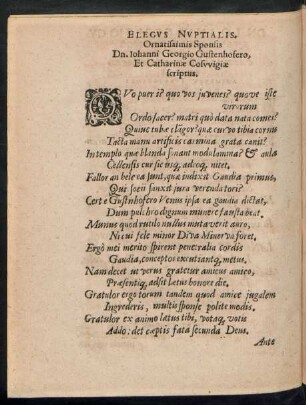 ELEGVS NVPTIALIS.
Ornatissimis Sponsis
Dn. Iohanni Georgio Gustenhofero,
Et Catharinæ Cosvvigiæ
scriptus.
QVo puer is? quo vos juvenes? quove iste
virorum
Ordo sacer? matri quò data nata comes?
Quinc tubæ clãgor? quæ cur vo tibia cornu
Tacta manu artificis carmina grata canit?
In templo quæ blanda sonant modulamina? & aula
Cellensis cur sic usq, adcoq, nitet,
Fallor an bele va sunt, quæ indixit Gaudia primus,
Qui socii sanxit jura verenda tori?
Certe Gustnhofero Venus ipsa ra gaudia dictat,
Dum pulchro dignum munere jactat babeat.
Munus quod rutilo nullus mutaverit auro,
Ni cui fele minor Diva Minerva furet,
Ergò mei merito spirent penetralia cordis
Gaudia, conceptos excutiantq, metus.
Nam decet ut verus gratetur amicus amico,
Præsentiq, adsit latus honore die.
Gratulor ergo torum tandem quod amice jugalem
Ingrederis, multis sponse polite modis.
Gratulor ex animo lætus tibi, votaq, votis
Addo: det cæptis fata secunda Deus.
Ante